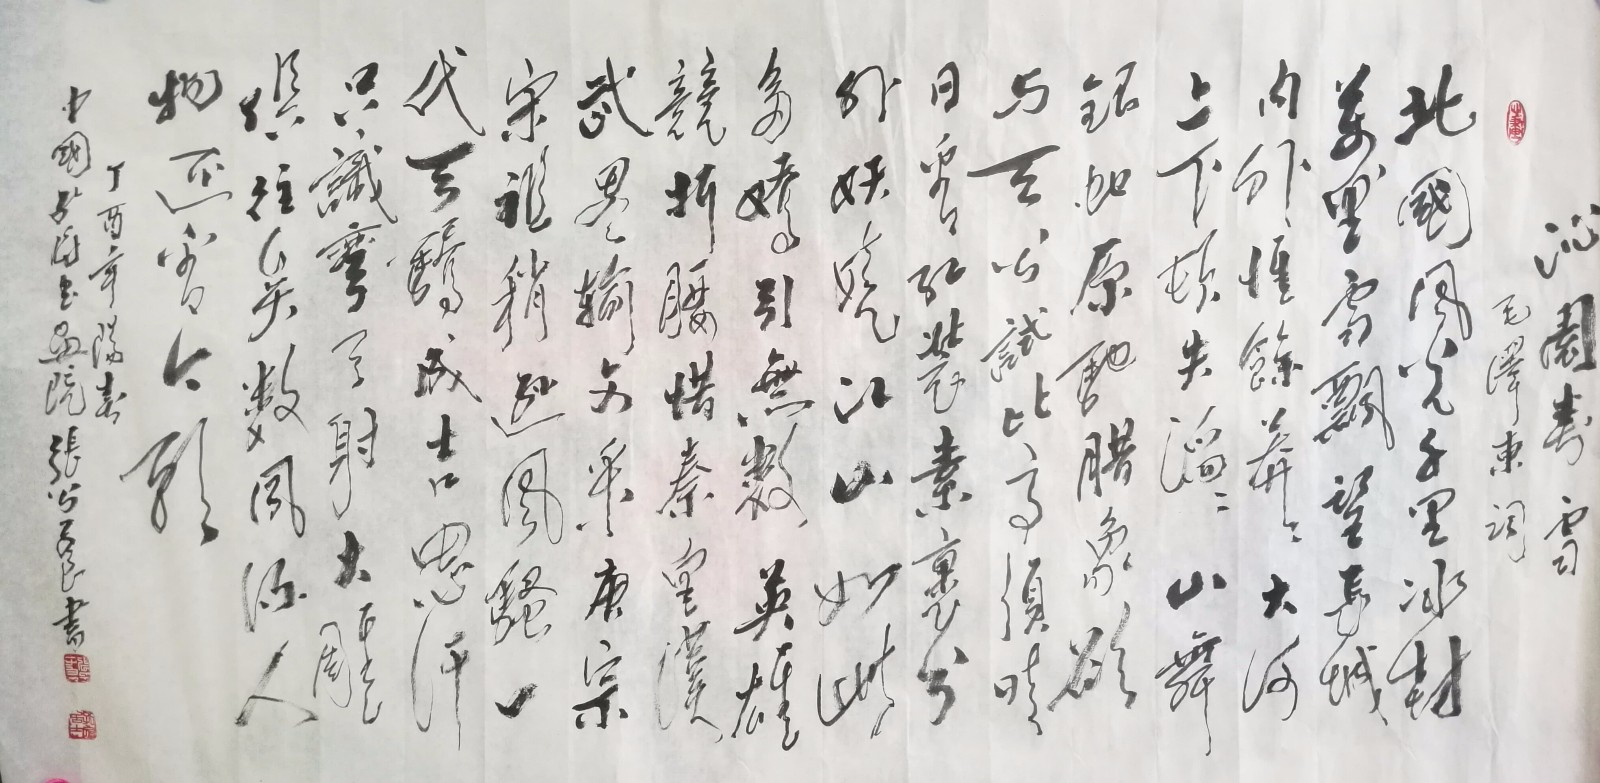 沁園春 雪
毛澤東詞
北國風光千里冰封
萬里雪飄望長城
内外惟餘莽々大河
上下頓失滔々山舞
銀蛇原馳腊象欲
与天公試比高須晴
日看红裝素裹分
外妖嬈江山如此
多嬌引無數英雄
競折腰惜秦皇漢
武畧輸文采唐宗
宋祖稍遜風騷一
代天驕成吉思汗
只識彎弓射大雕
俱往矣数風流人
物还看今朝
丁酉年陽春
中國書畫院張書